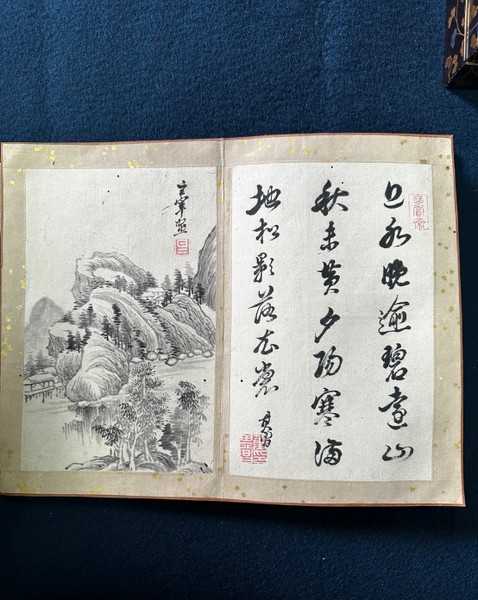 水晚逾碧遠山
秋未黄夕陽寒滿
地松影落衣裳
其昌
玄宰